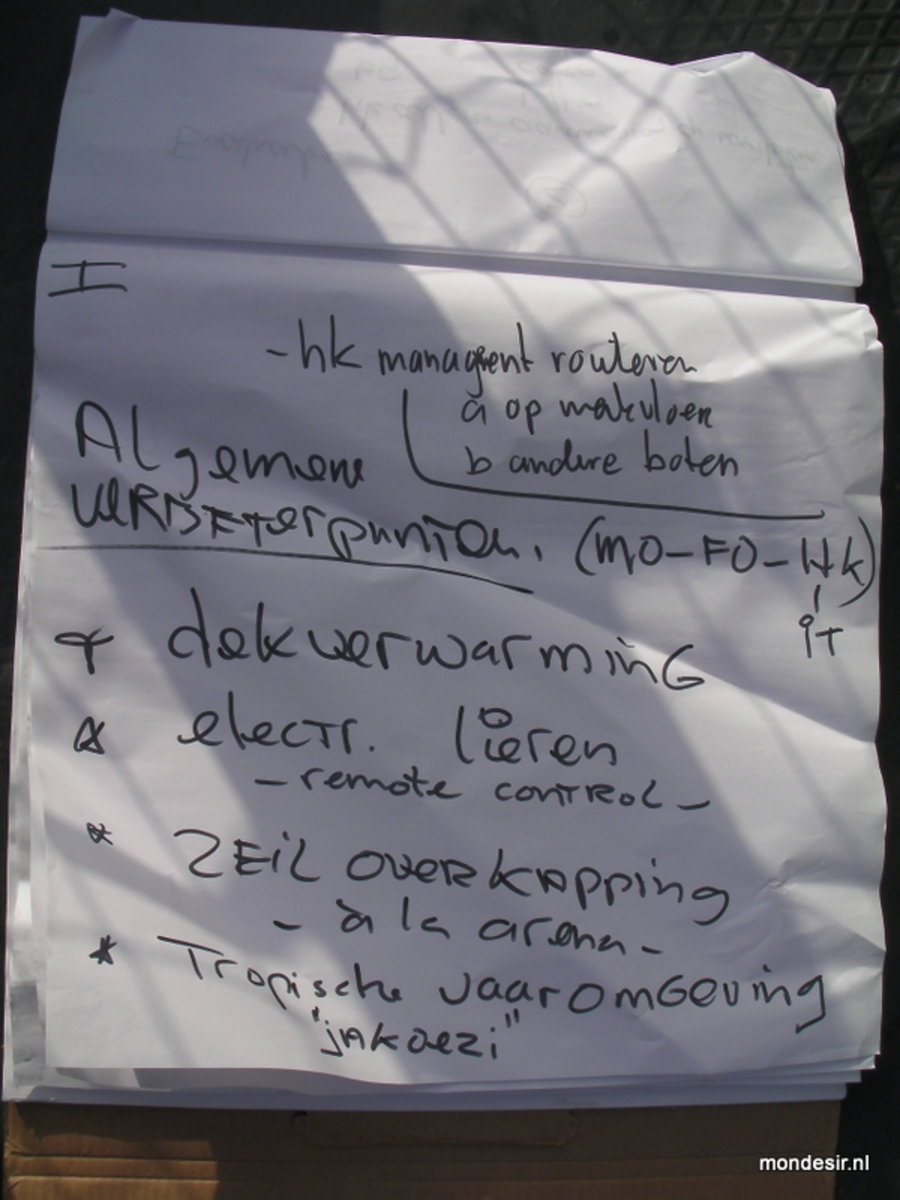 I
- hk managent routeren
a op werkvloer
b andere boten
Algemene
VERBETERpunten. (MO-FO-HK)
iT
* dekverwarminG
* electr. lieren
- remote CONTROL -
* ZEiL OVERKAPPing
- à la arena -
* Tropische vaaromGeving
"jAKoezi"
mondesir.nl